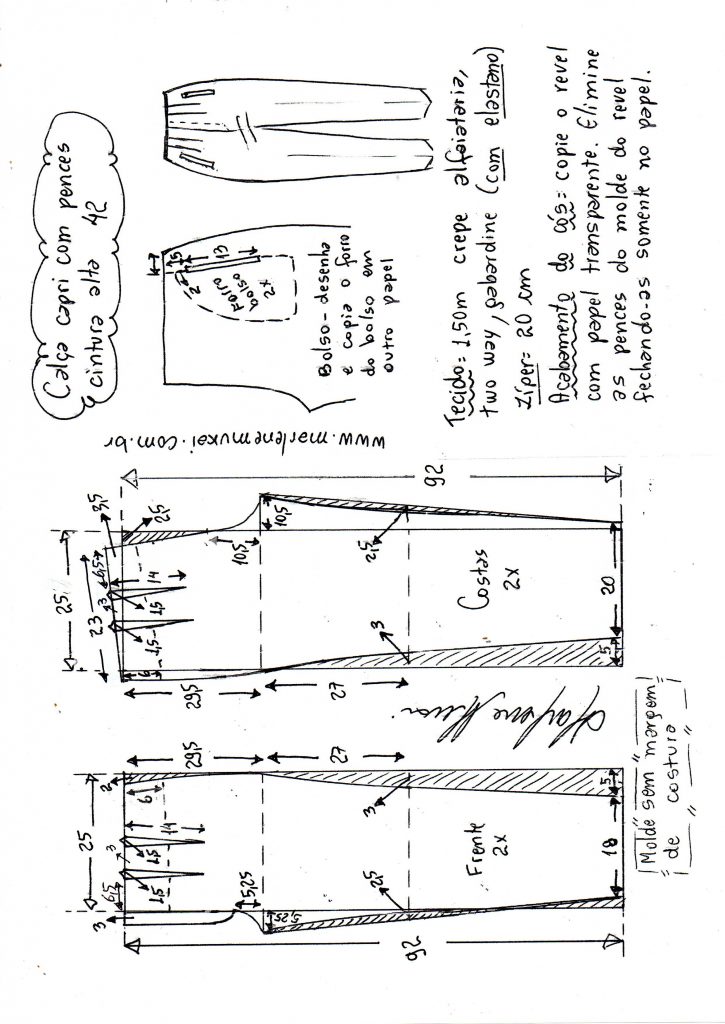 Calça capri com pences
cintura alta 42
www.marlenemukai.com.br
1,5
15
2
Forro
bolso
2x
Bolso-desenha
e copia o forro
do bolso em
outro papel
Tecido= 1,50m crepe alfaiataria,
two way, gabardine (com elastano)
Zíper= 20 cm
Acabamento do cós= copie o revel
com papel transparente. Elimine
as pences do molde do revel
fechando-as somente no papel.
3,5
25
23
2,5
6,5
3
14
1,5
1,5
6
10,5
10,5
29,5
27
2,5
3
Costas
2x
20
5
92
25
2
6
14
3
1,5
1,5
6,5
3
5,25
5,25
29,5
27
3
2,5
Frente
2x
18
5
92
Molde sem margem
de costura